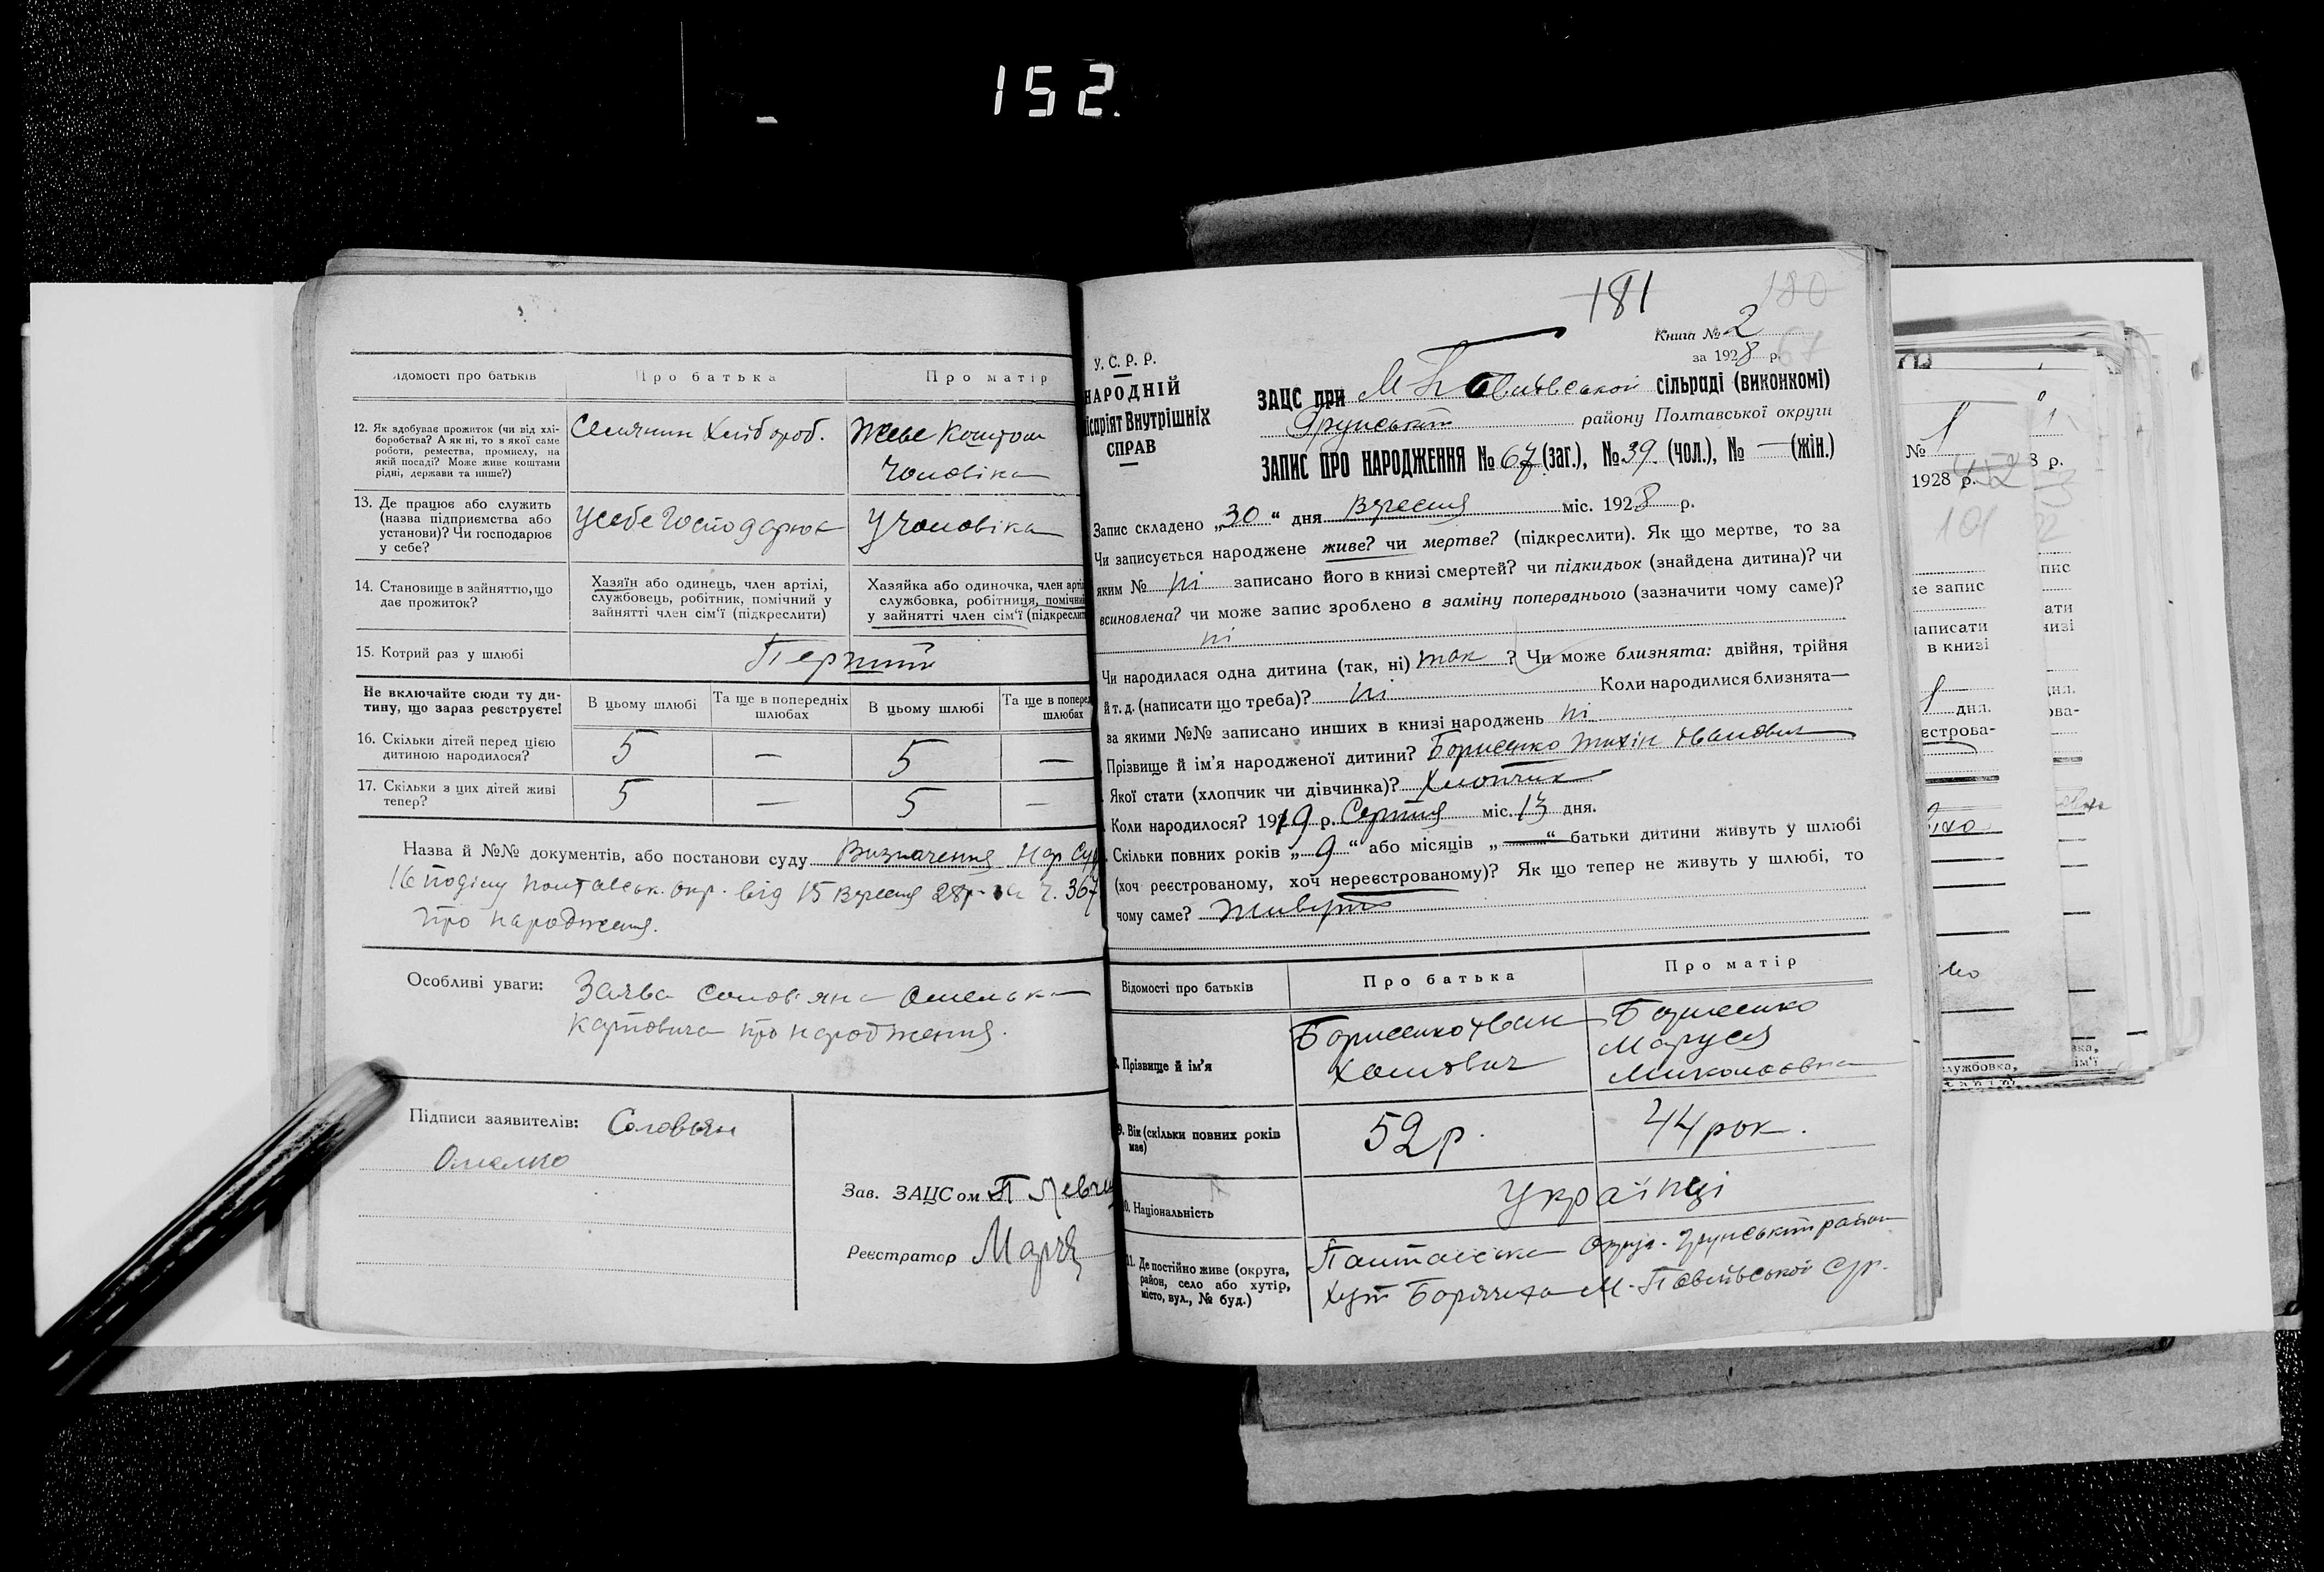 152.
відомості про батьків
Про батька
Про матір
12. Як здобуває прожиток (чи від хлі-
боробства? А як ні, то з якої саме
роботи, ремества, промислу, на
якій посаді? Може живе коштами
рідні, держави та инше?)
Селянин Хлібороб.
Живе Коштом
Чоловіка
13. Де працює або служить
(назва підприємства або
установи)? Чи господарює
у себе?
У себе Господарює
У Чоловіка
14. Становище в зайняттю, що
дає прожиток?
Хазяїн або одинець, член артілі,
службовець, робітник, помічний у
зайнятті член сім'ї (підкреслити)
Хазяйка або одиночка, член арті
службовка, робітниця, помічни
у зайнятті член сім'ї (підкресли
15. Котрий раз у шлюбі
Перший
Не включайте сюди ту ди-
тину, що зараз реєструєте!
В цьому шлюбі
Та ще в попередніх
шлюбах
В цьому шлюбі
Та ще в поперед
шлюбах
16. Скільки дітей перед цією
дитиною народилося?
5 — 5 —
17. Скільки з цих дітей живі
тепер?
5 — 5 —
Назва й №№ документів, або постанови суду Визначення Нар Суд
16 поділу Полтавськ. окр. від 15 Вересня 28р. за ч. 367
про народження.
Особливі уваги:
Заява Солов'яна Омелька
Карповича про народження.
Підписи заявителів: Соловьян
Омелько
Зав. ЗАЦСом
Реєстратор
181
180
Книга № 2
за 1928 р.
67
У. С. Р. Р.
НАРОДНІЙ
ісаріят Внутрішніх
СПРАВ
ЗАЦС при М-Павлівській сільраді (виконкомі)
Грунський району Полтавської округи
ЗАПИС ПРО НАРОДЖЕННЯ № 67 (заг.), № 39 (чол.), № — (жін.)
Запис складено „30“ дня Вересня міс. 1928 р.
Чи записується народжене живе? чи мертве? (підкреслити). Як що мертве, то за
яким № ні записано його в книзі смертей? чи підкидьок (знайдена дитина)? чи
всиновлена? чи може запис зроблено в заміну попереднього (зазначити чому саме)?
ні
Чи народилася одна дитина (так, ні) так ? Чи може близнята: двійня, трійня
й т. д. (написати що треба)? ні Коли народилися близнята—
за якими №№ записано инших в книзі народжень ні
Прізвище й ім'я народженої дитини? Борисенко Тихін Иванович
Якої стати (хлопчик чи дівчинка)? Хлопчик
Коли народилося? 1919 р. Серпня міс. 13 дня.
Скільки повних років „9“ або місяців „—“ батьки дитини живуть у шлюбі
(хоч реєстрованому, хоч нереєстрованому)? Як що тепер не живуть у шлюбі, то
чому саме? Живуть
Відомості про батьків
Про батька
Про матір
Прізвище й ім'я
Борисенко Иван
Хомович
Борисенко
Маруся
Миколаовна
9. Вік (скільки повних років
має)
52 р.
44 рок.
10. Національність
Українці
11. Де постійно живе (округа,
район, село або хутір,
місто, вул., № буд.)
Полтавська Округа. Грунський район
Хут М-Павлівської с/р.
№ 1
1928 р.
8 р.
101
пис
же запис
ати
написати
низі
в книзі
дня.
ова-
єстрова-
службовка,